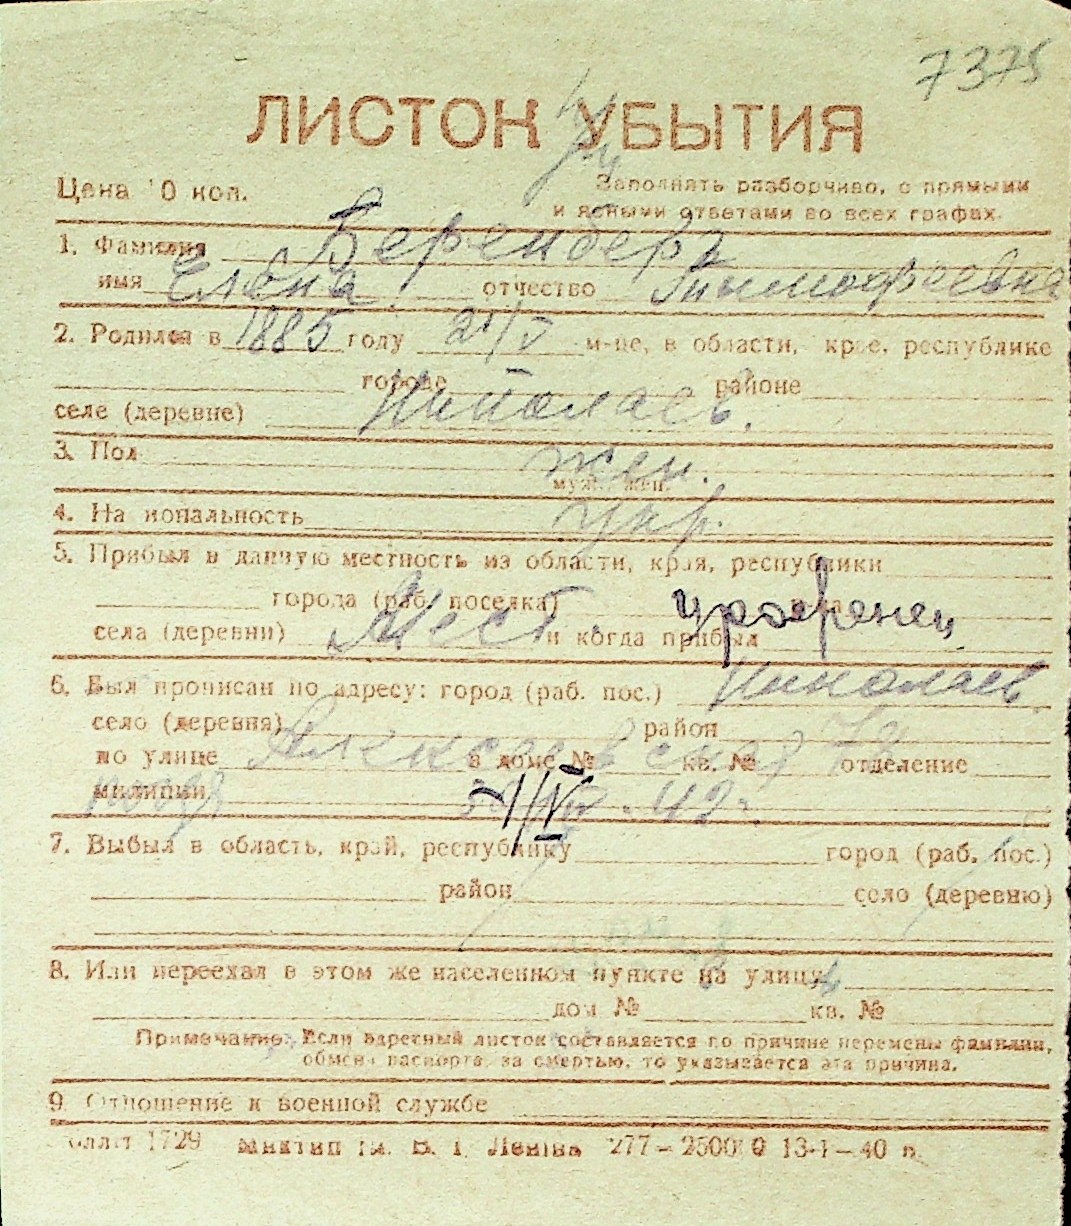 7375
ЛИСТОК УБЫТИЯ
Цена 10 коп.
Заполнять разборчиво, с прямыми
и ясными ответами во всех графах.
1. Фамилия Беренберг
имя Елена отчество Тимофеевна
2. Родился в 1885 году 21/V м-це, в области, крае, республике
городе районе
селе (деревне) Николаев.
3. Пол жен.
муж. жен.
4. Национальность укр.
5. Прибыл в данную местность из области, края, республики
города (раб. поселка)
села (деревни) Мест. и когда прибыл уроженец
6. Был прописан по адресу: город (раб. пос.) Николаев
село (деревня) район
по улице Алексеевская 72 в доме № кв. № отделение
милиции 42 г.
7. Выбыл в область, край, республику город (раб. пос.)
район село (деревню)
8. Или переехал в этом же населенном пункте на улицу
дом № кв. №
Примечание: Если адресный листок составляется по причине перемены фамилии,
обмена паспорта, за смертью, то указывается эта причина.
9. Отношение к военной службе
1729 им. В. І. Леніна 277—25000 13-I—40 п.